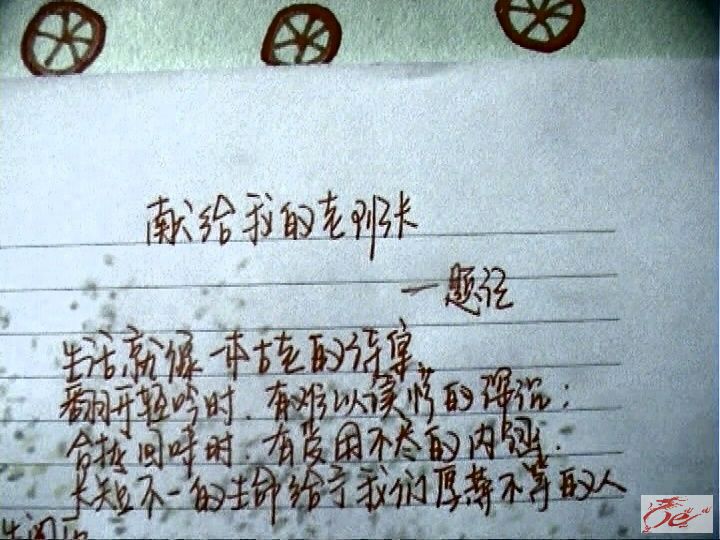 献给我的老班长
一题记
生活就像一本古老的诗集
翻开轻吟时,有难以读懂的深沉;
合卷回味时,有受用不尽的内涵.
长短不一的生命给予我们厚薄不等的人
生阅历